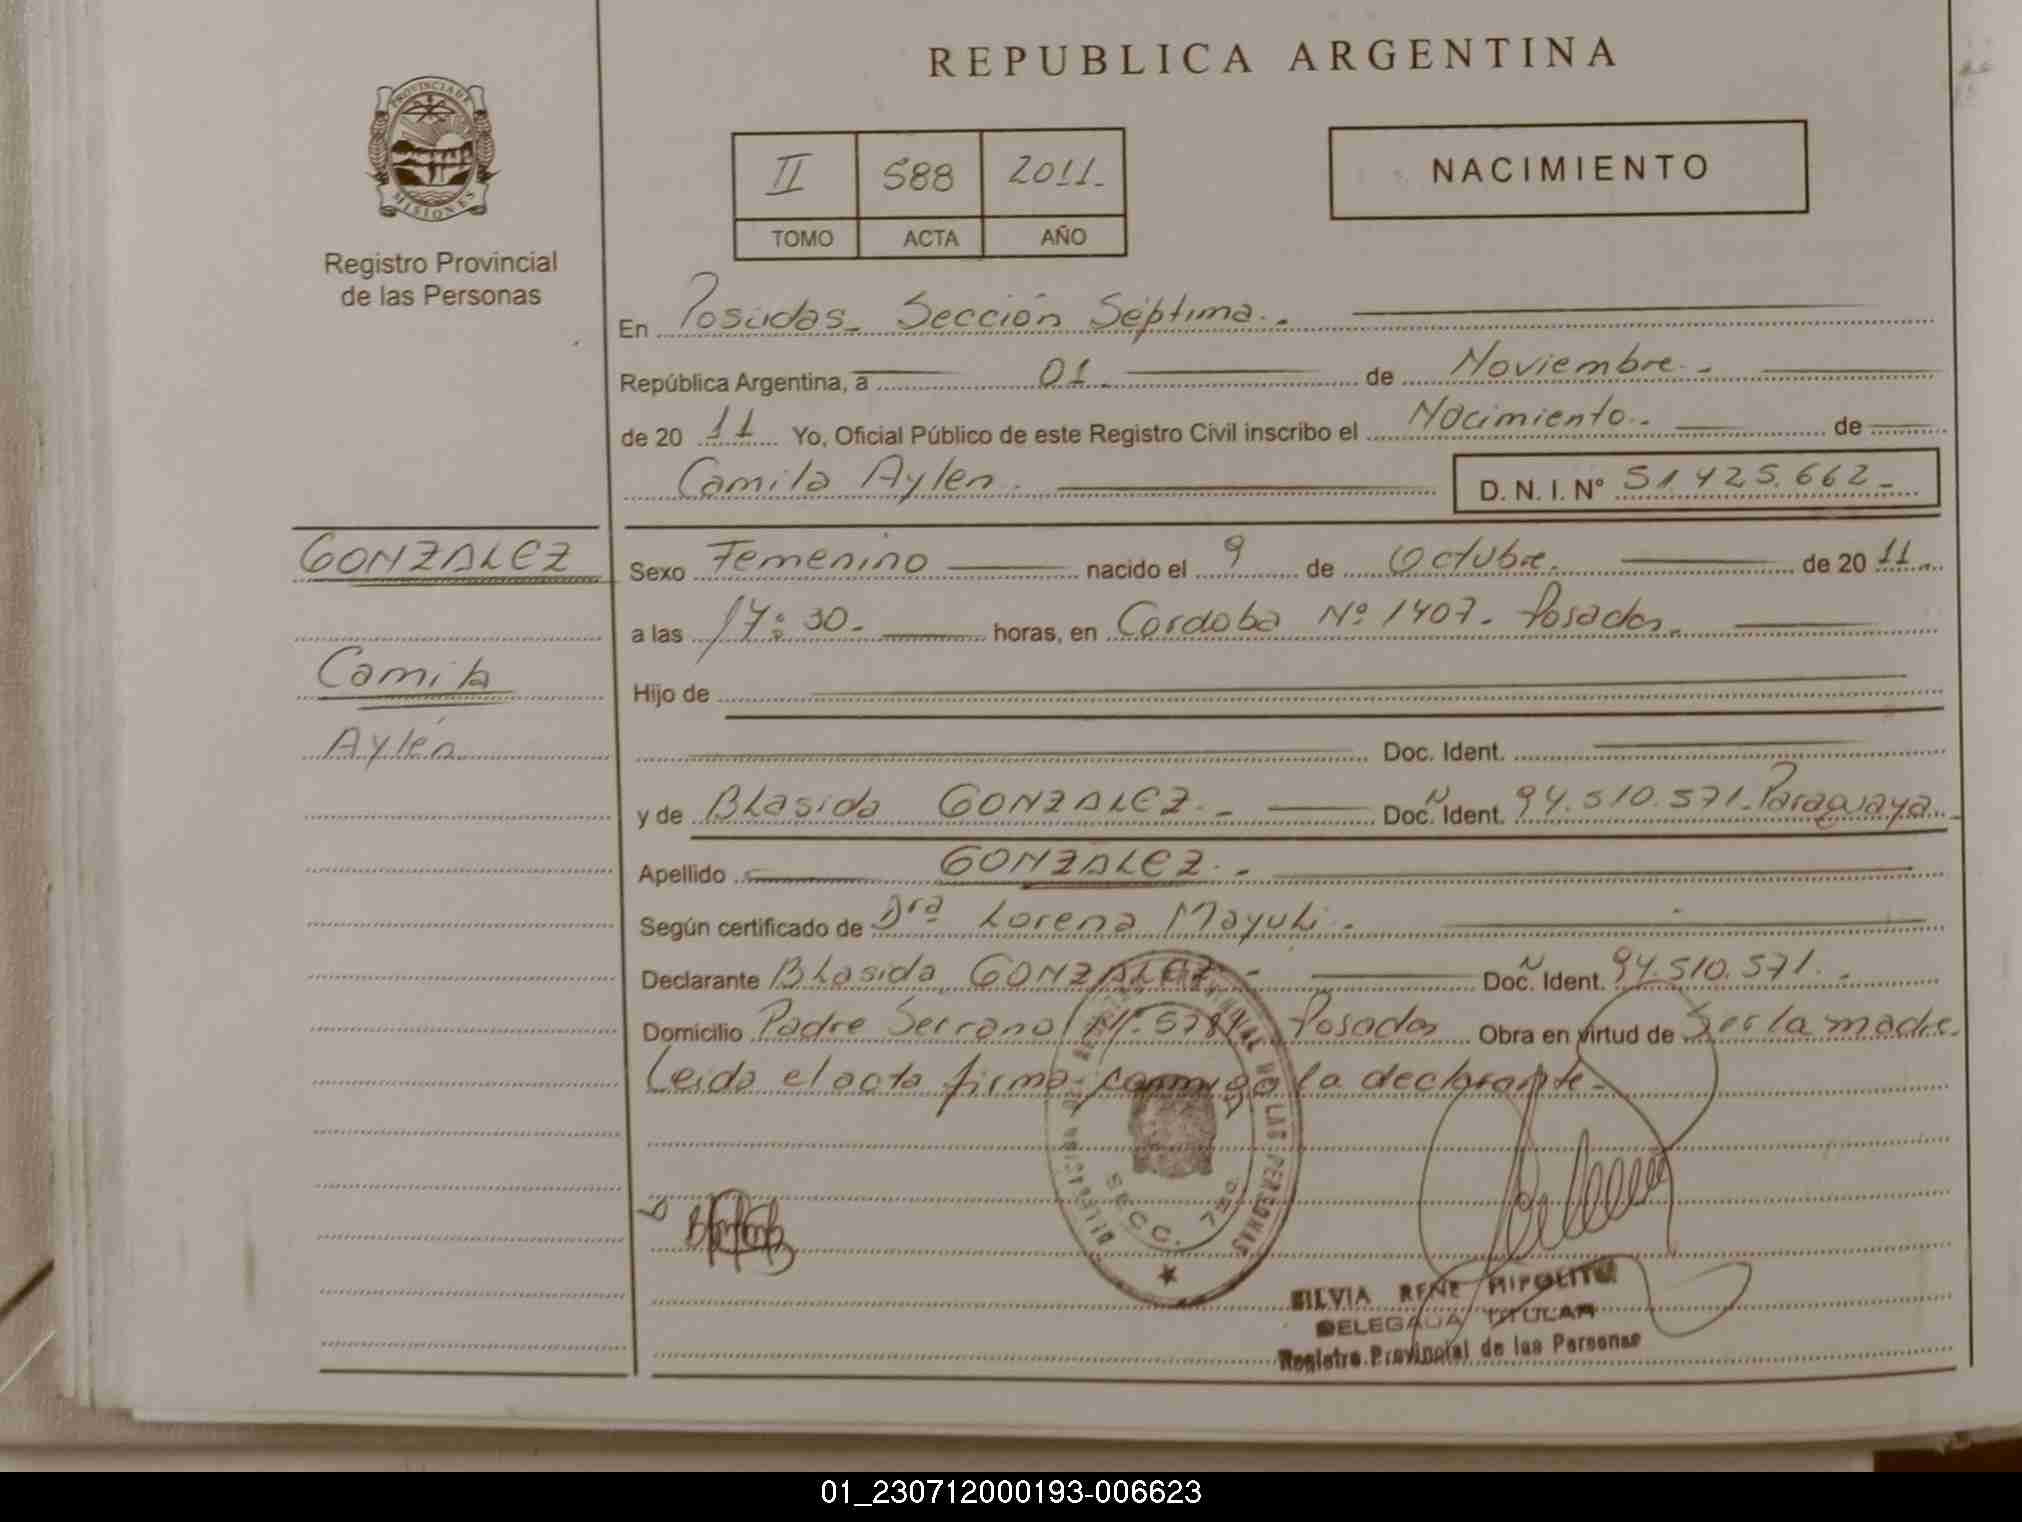 REPUBLICA ARGENTINA
PROVINCIA DE
MISIONES
Registro Provincial
de las Personas
II 588 2011.-
TOMO ACTA AÑO
NACIMIENTO
En Posadas - Sección Séptima.-
República Argentina, a 01 de Noviembre.-
de 20 11 Yo, Oficial Público de este Registro Civil inscribo el Nacimiento.- de
Camila Aylen. D. N. I. N° 51.425.662-
GONZALEZ
Camila
Aylén
Sexo Femenino nacido el 9 de Octubre. de 20 11
a las 17:30- horas, en Cordoba Nº 1407. Posadas.
Hijo de
Doc. Ident.
y de Blasida GONZALEZ.- Doc. Ident. 94.510.571. Paraguaya
Apellido GONZALEZ.-
Según certificado de Dra Lorena
Declarante Blasida GONZALEZ.- Doc. Ident. 94.510.571.-
Domicilio Padre Serrano Nº Posadas Obra en virtud de Ser la madre.
Leida el acta firma conmigo la declarante-
DELEGACION DEL REGISTRO PROVINCIAL DE LAS PERSONAS
SECC. 7ma.
SILVIA RENE HIPOLITO
DELEGADA TITULAR
Registro Provincial de las Personas
01_230712000193-006623